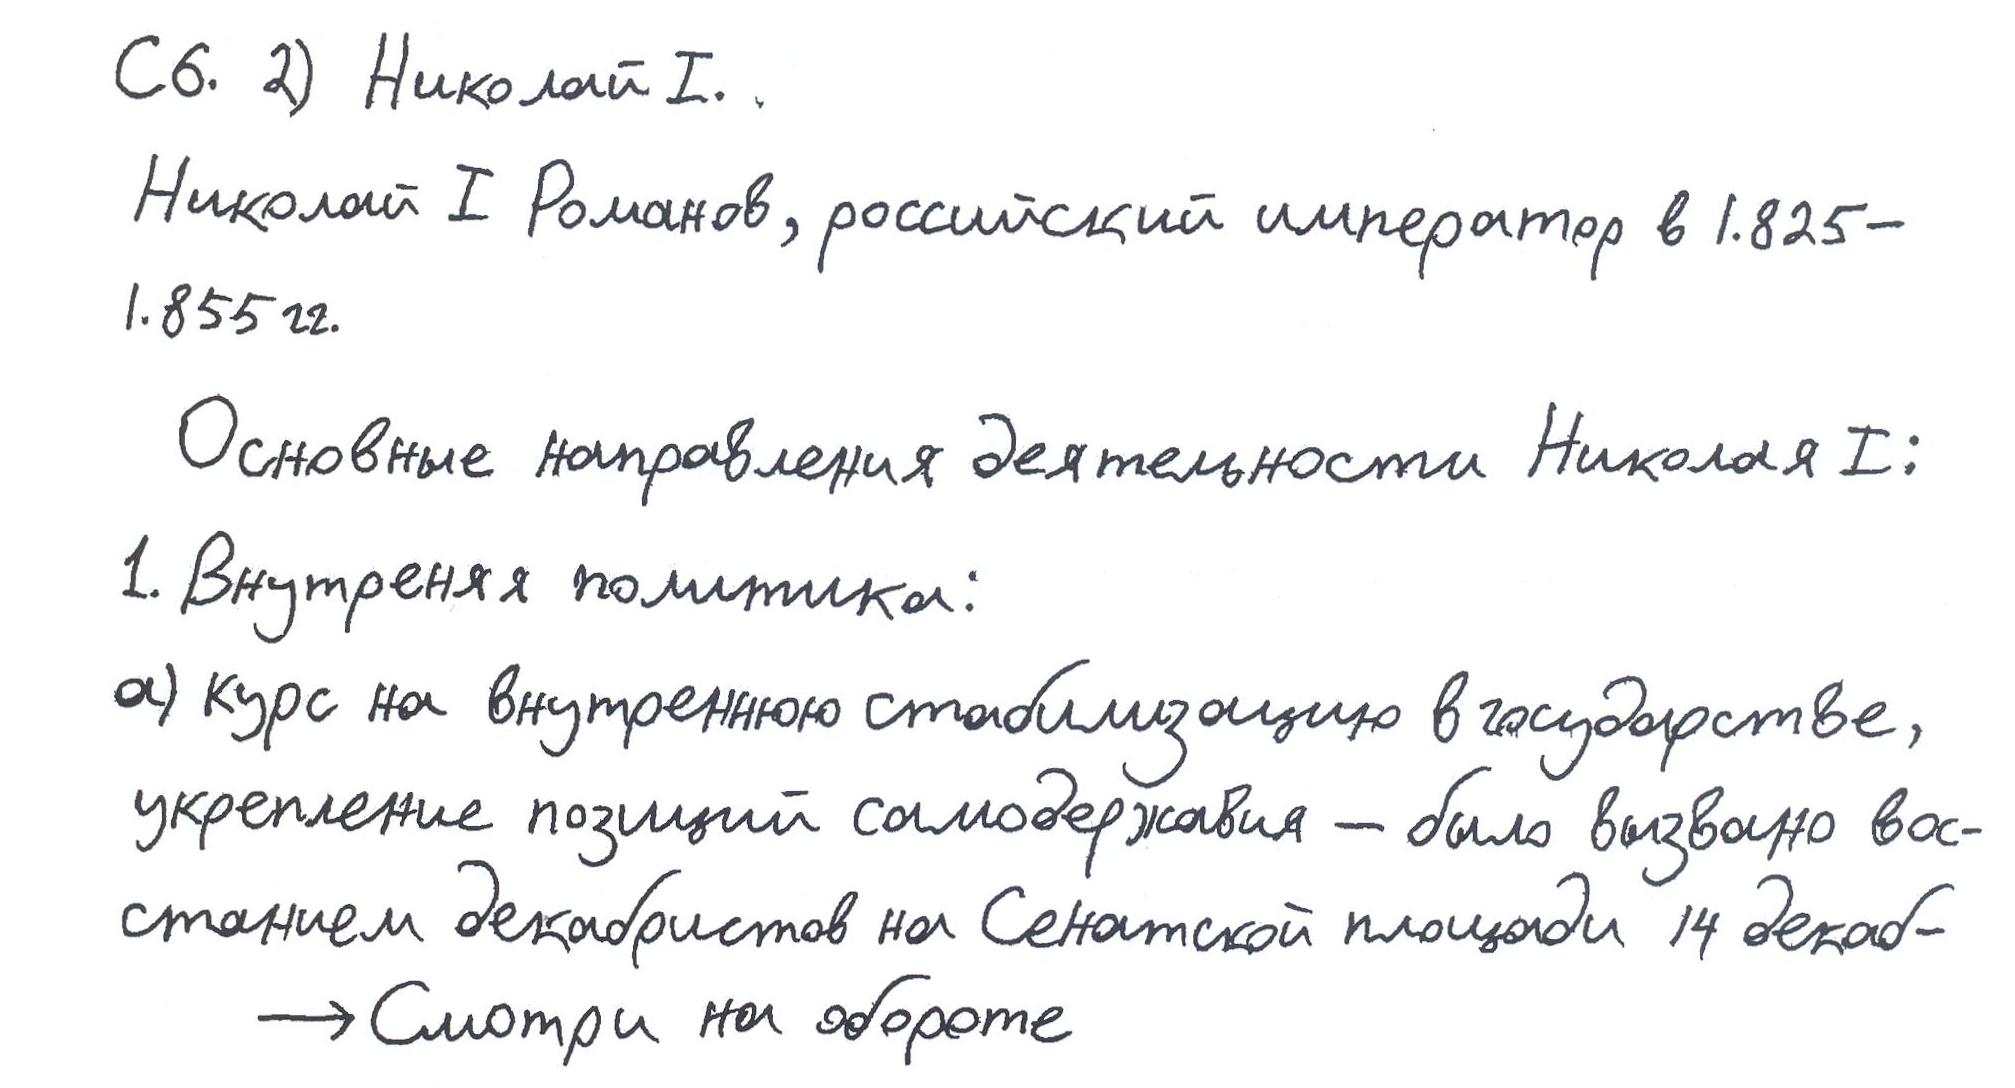 С6. 2) Николай I.
Николай I Романов, российский император в 1.825–
1.855 гг.
Основные направления деятельности Николая I:
1. Внутреняя политика:
а) курс на внутреннюю стабилизацию в государстве,
укрепление позиций самодержавия – было вызвано вос-
станием декабристов на Сенатской площади 14 декаб-
→ Смотри на обороте